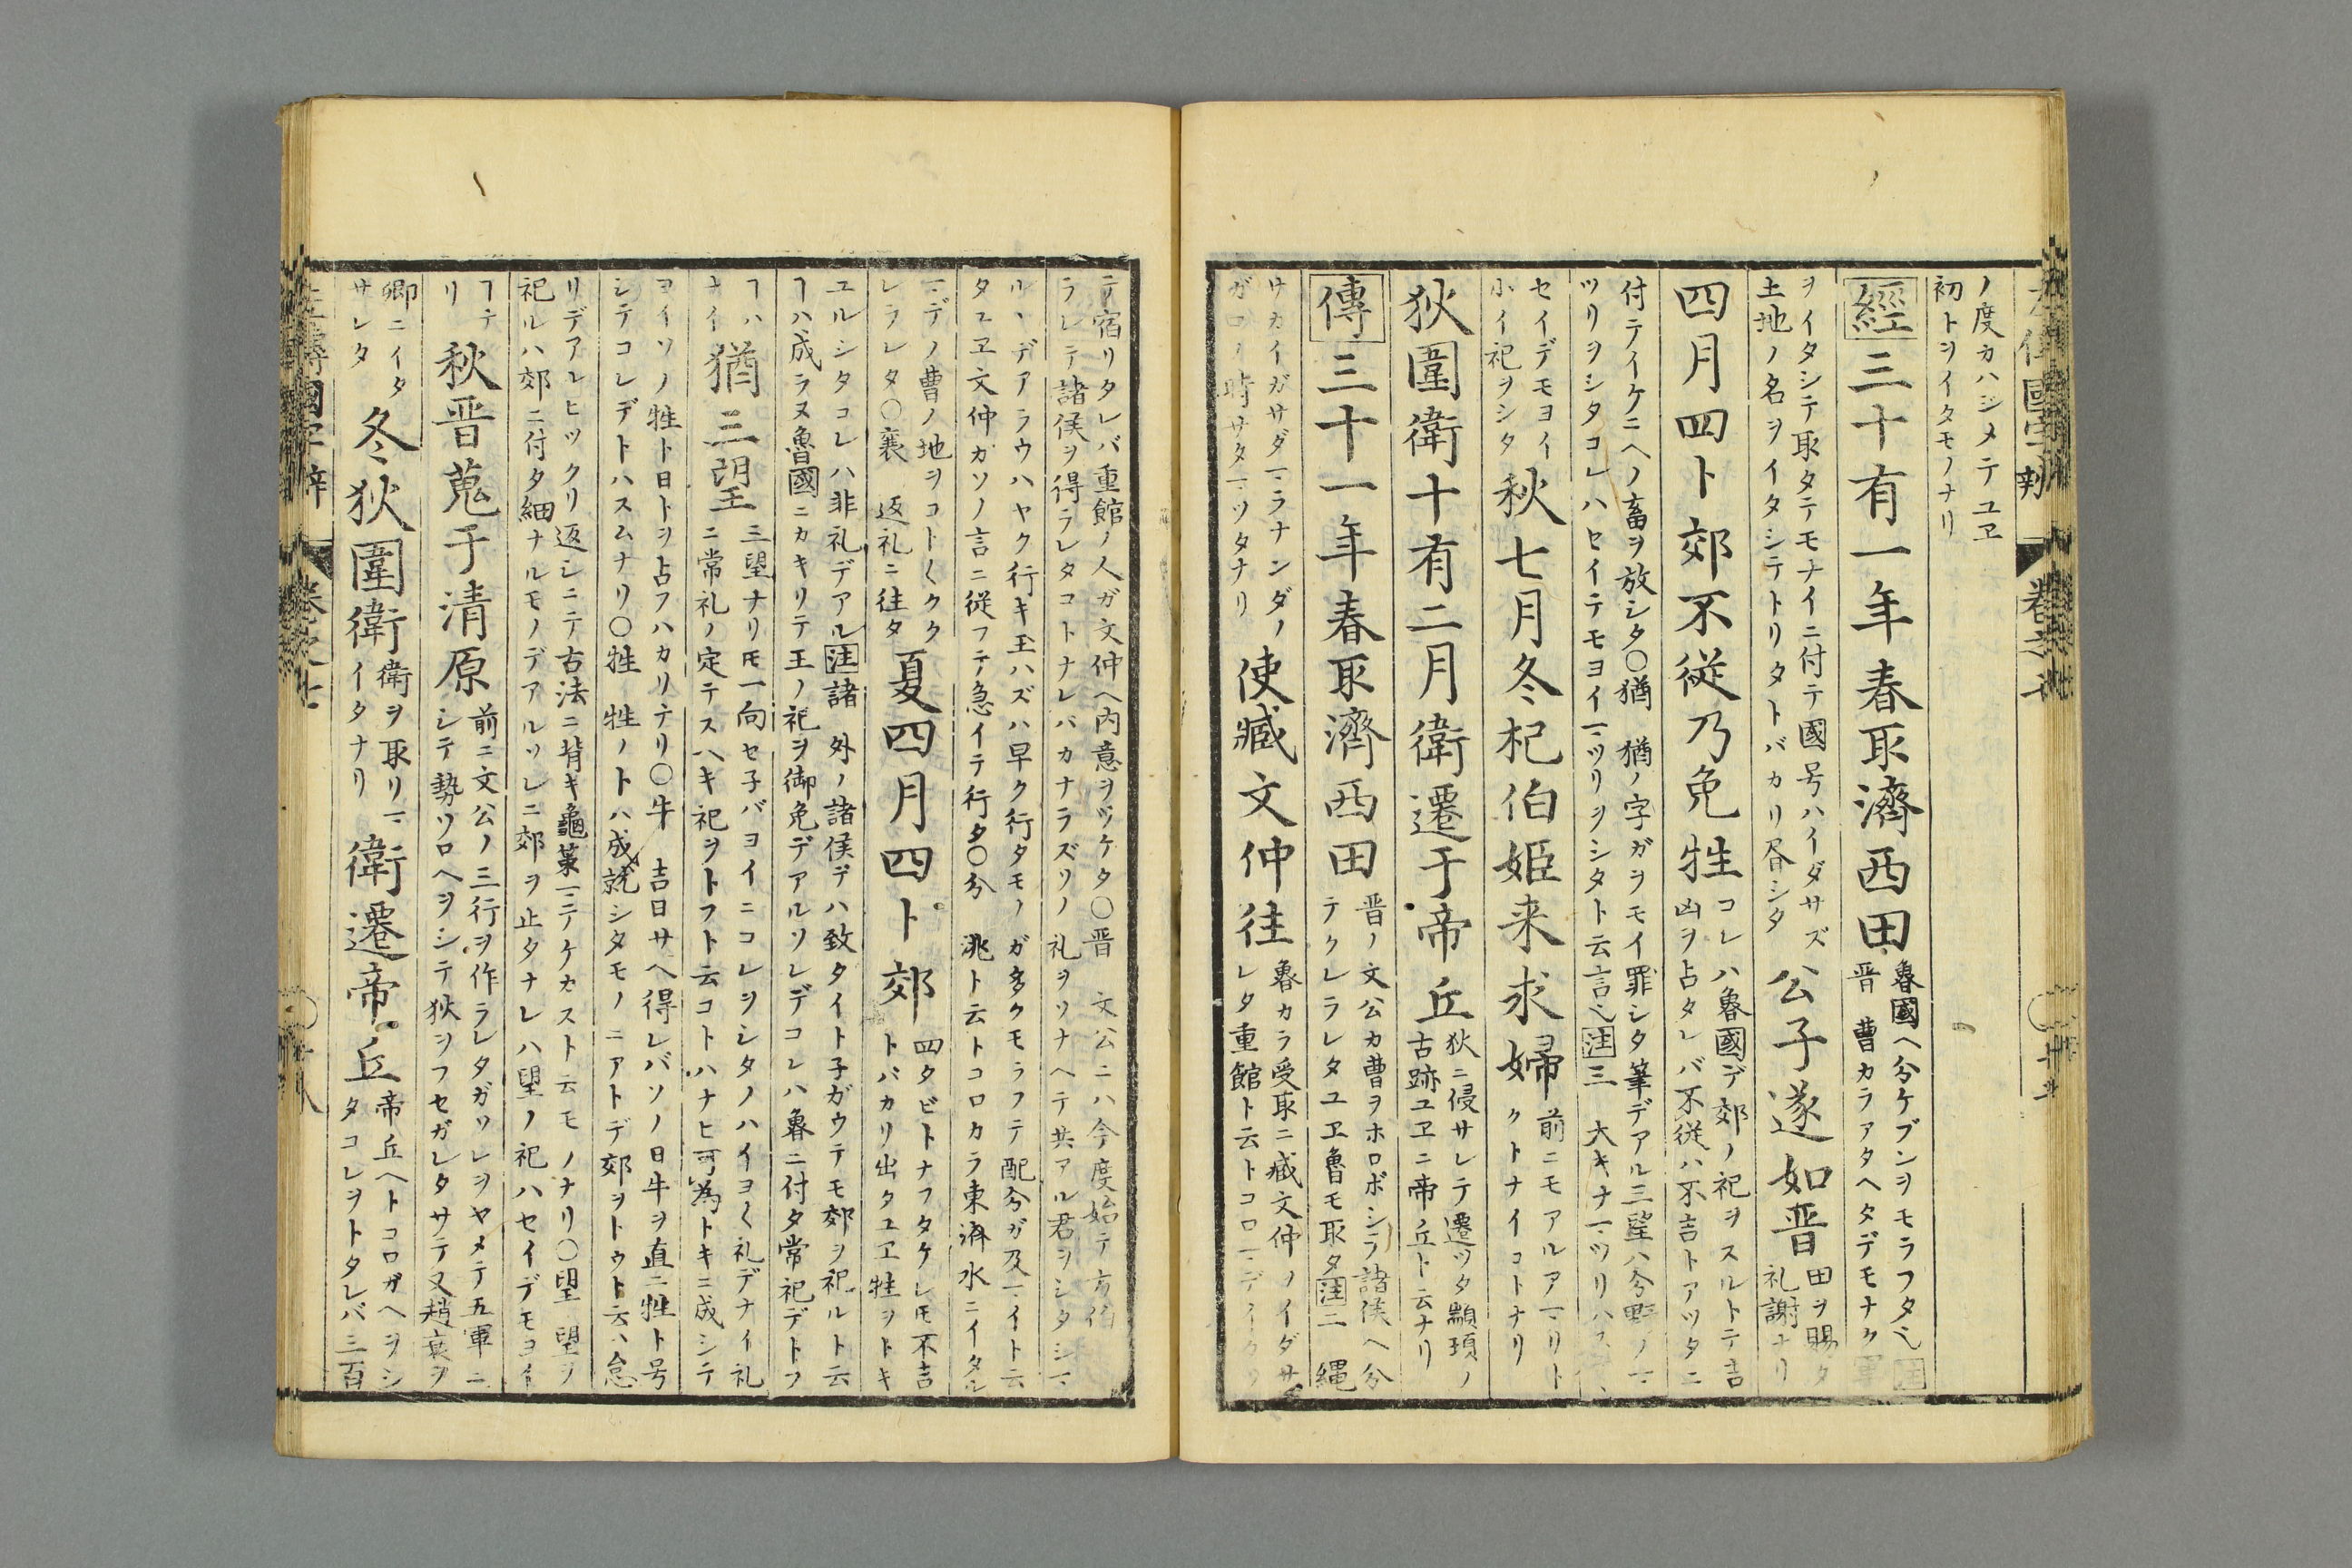 左傳國字辨 卷之七
ノ度カハジメテユヱ
初トヲイタモノナリ
經三十有一年春取濟西田
魯國ヘ分ケブンヲモラフタ也
晋 曹カラアタヘタデモナク
ヲイタシテ取タテモナイニ付テ國号ハイダサズ
土地ノ名ヲイタシテトリタトバカリ昏シタ
公子遂如晋
田ヲ賜タ
礼謝ナリ
四月四卜郊不従乃免牲
コレハ魯國デ郊ノ祀ヲスルトテ吉
凶ヲ占タレバ不従ハ不吉トアツタニ
付テイケニヘノ畜ヲ放シタ〇猶 猶ノ字ガヲモイ罪シタ筆デアル三望ハ分野ノ
ツリヲシタコレハセイテモヨイマツリヲシタト云言也注三 大キナマツリハ
セイデモヨイ
小イ祀ヲシタ
秋七月冬杞伯姫来求婦
前ニモアルアマリト
クトナイコトナリ
狄圍衛十有二月衛遷于帝丘
狄ニ侵サレテ遷ツタ顓頊ノ
古跡ユヱニ帝丘ト云ナリ
傳三十一年春取濟西田
晋ノ文公カ曹ヲホロボシテ諸侯ヘ分
テクレラレタユヱ魯モ取タ注二 縄
ワカイガサダマラナンダノ
ガコノ時サタマツタナリ
使臧文仲往
魯カラ受取ニ臧文仲ノイダサ
レタ重館ト云トコロマデイタツ
テ宿リタレバ重館ノ人ガ文仲ヘ内意ヲツケタ〇晋 文公ニハ今度始テ方伯
ラレテ諸侯ヲ得ラレタコトナレバカナラズソノ礼ヲソナヘテ共アル君ヲシタシマ
ルヽデアラウハヤク行キ玉ハズハ早ク行タモノガ多クモラフテ配分ガ及マイト云
タユヱ文仲ガソノ言ニ従フテ急イテ行タ〇分 洮ト云トコロカラ東濟水ニイタル
マデノ曹ノ地ヲコトくクク
レラレタ〇襄 返礼ニ往タ
夏四月四卜郊
四タビトナフタケレモ不吉
トバカリ出タユヱ牲ヲトキ
ユルシタコレハ非礼デアル注諸 外ノ諸侯デハ致タイト子ガウテモ郊ヲ祀ルト云
ヿハ成ラヌ魯國ニカキリテ王ノ祀ヲ御免デアルソレデコレハ魯ニ付タ常祀デトフ
ヿハ
ナイ
猶三望
三望ナリモ一向セ子バヨイニコレヲシタノハイヨく礼デナイ礼
ニ常礼ノ定テスヘキ祀ヲトフト云コトハナヒ可為トキニ成シテ
ヨイソノ牲ト日トヲ占フハカリナリ〇牛 吉日サヘ得レバソノ日牛ヲ直ニ牲ト号
シテコレデトハスムナリ〇牲 牲ノトハ成就シタモノニアトデ郊ヲトウト云ハ怠
リデアレヒツクリ返シニテ古法ニ背キ龜䇲マデケカスト云モノナリ〇望 望ヲ
祀ルハ郊ニ付タ細ナルモノデアルソレニ郊ヲ止タナレハ望ノ祀ハセイデモヨイ
ヿナ
リ
秋晋蒐于清原
前ニ文公ノ三行ヲ作ラレタガソレヲヤメテ五軍ニ
シテ勢ソロヘヲシテ狄ヲフセガレタサテ又趙衰ヲ
卿ニイタ
サレタ
冬狄圍衛
衛ヲ取リマ
イタナリ
衛遷帝丘
帝丘ヘトコロガヘヲシ
タコレヲトタレバ三百
左傳國字辨 卷之七 十八